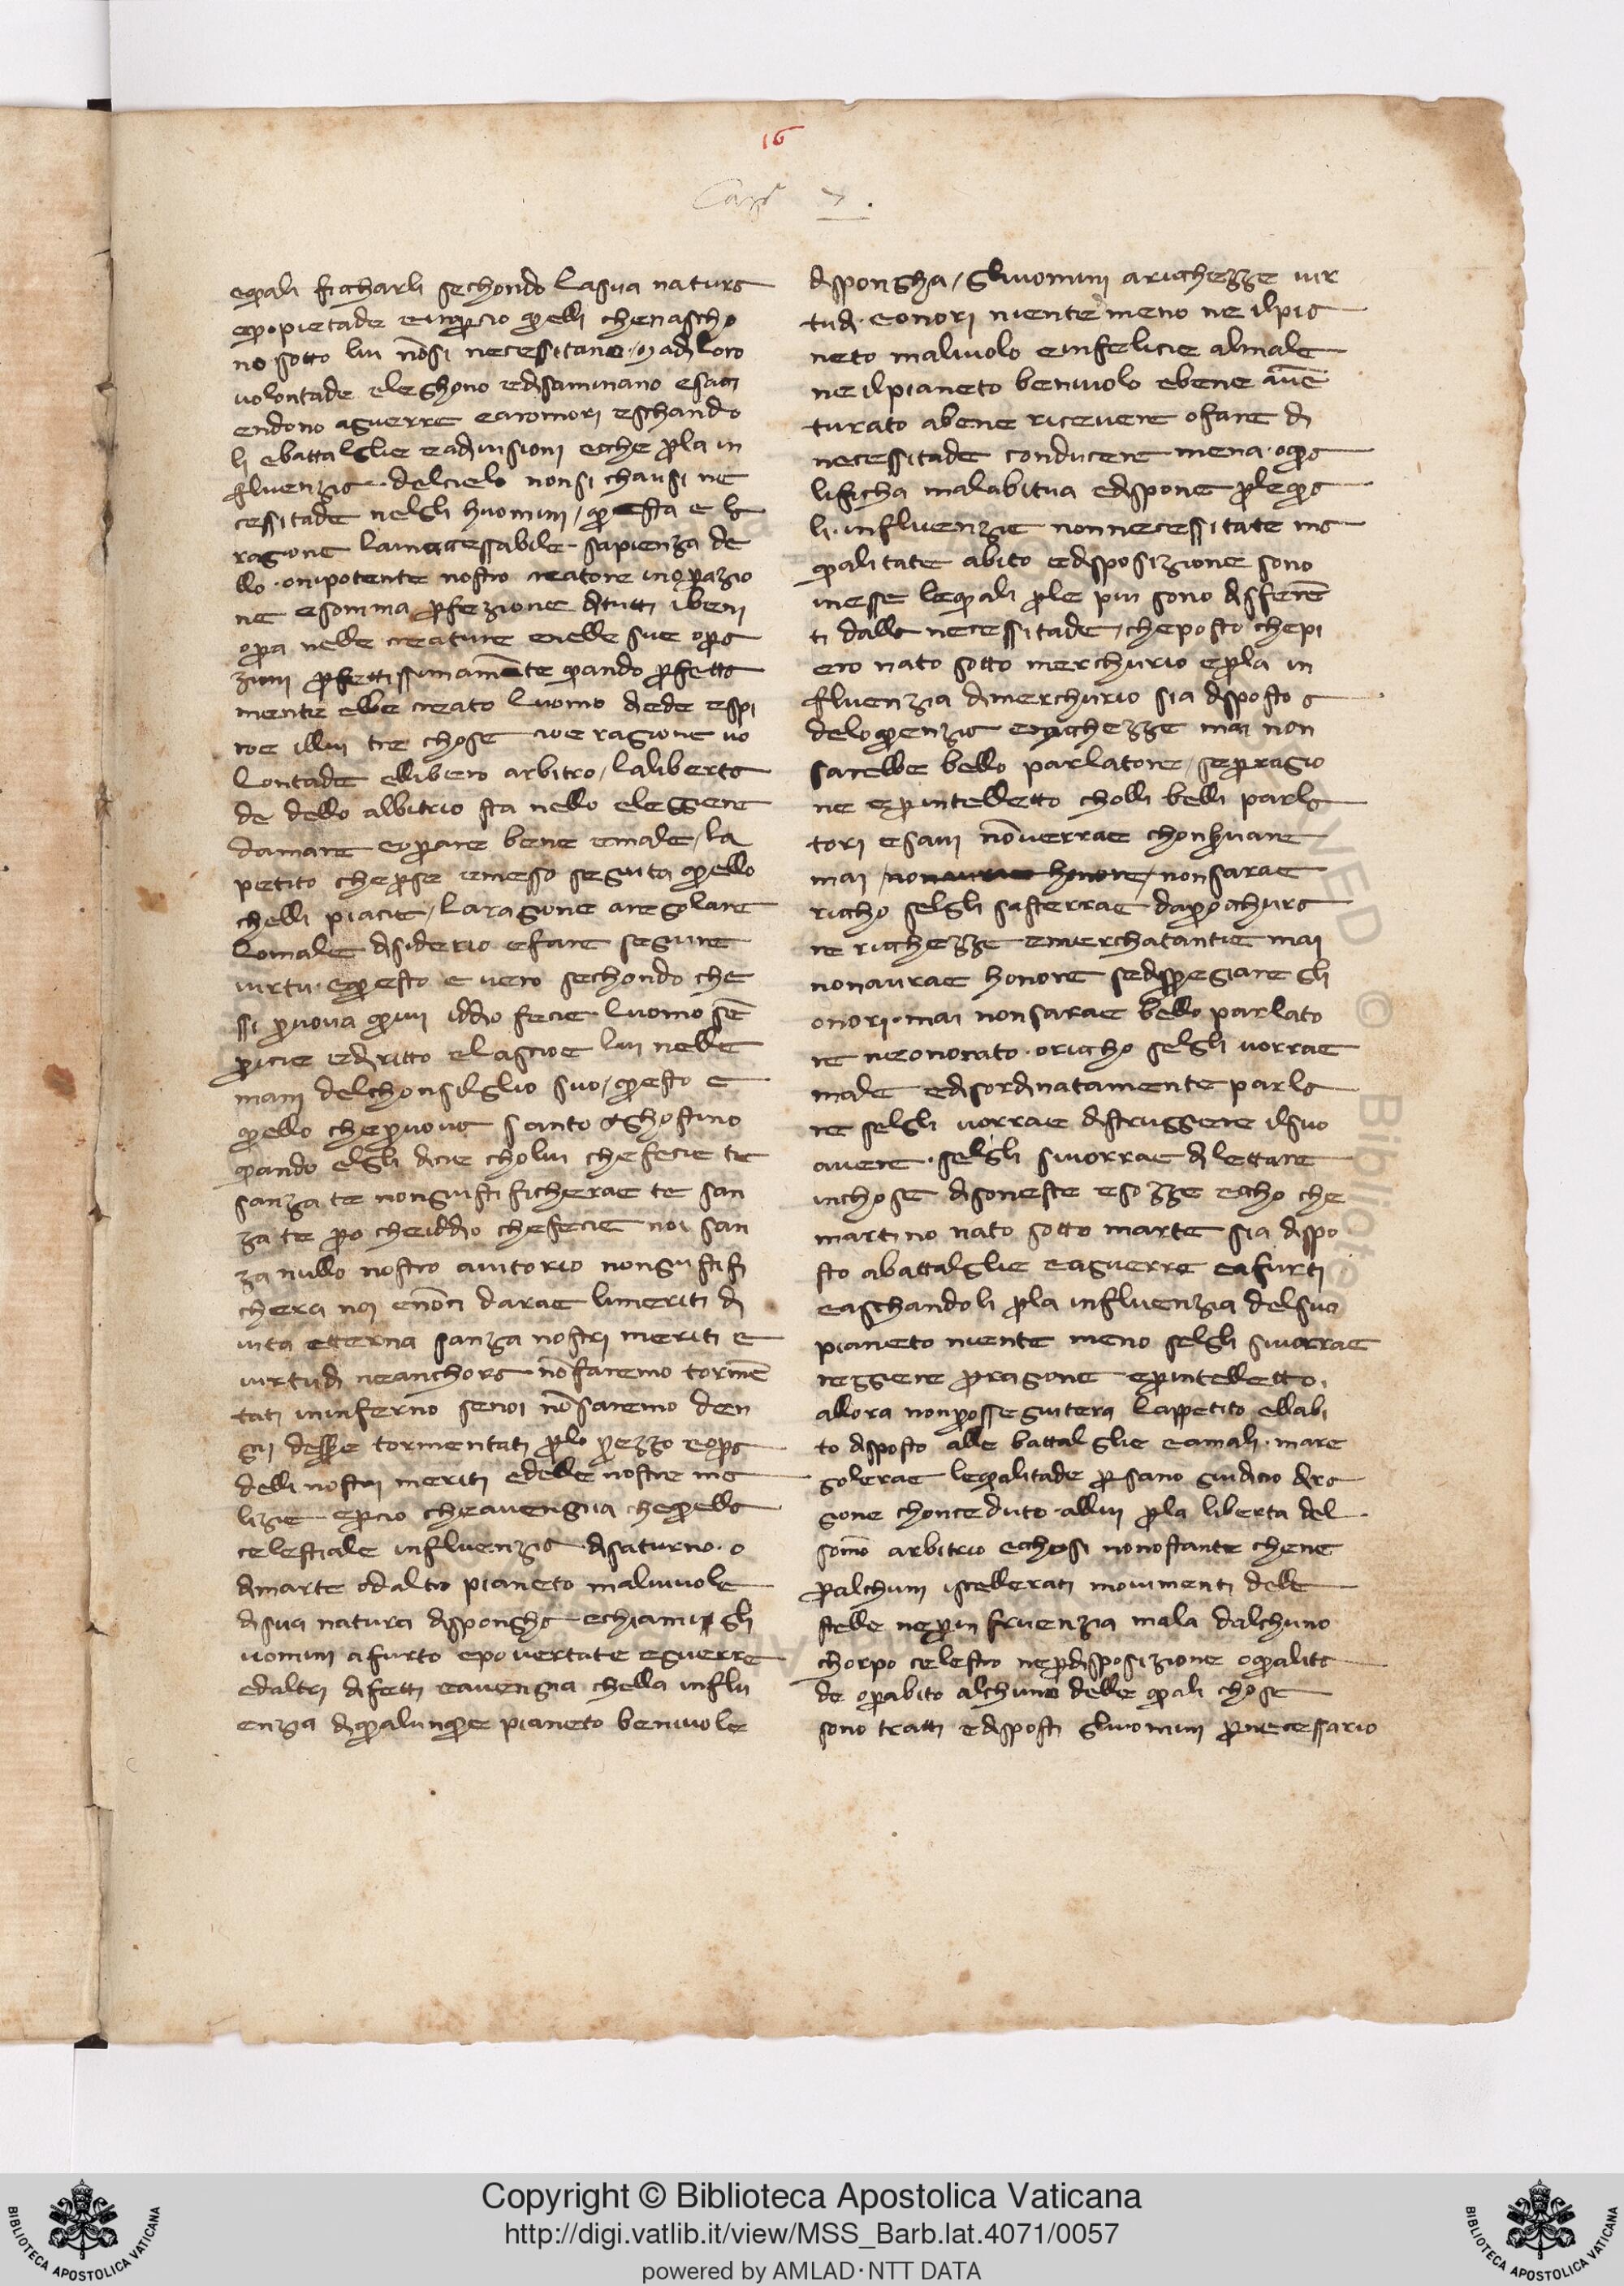 16
Car 7.
equali ficharli sechondo la sua natura
epropietade e inpercio quelli che nascho
no sotto lui nōsi necessitano · madiloro
volontade eleghono edisaminano esaci
endono aguerre earomori eschando
li ebattalglie eadivisioni ecche perla in
fluenzia delcielo nonsi chausi ne
cessitade nelgli huomini / questa e la
ragione sapienza de
llo · onipotente nostro creatore inoperazio
ne esomma perfezione ditutti ibeni
opera nelle creature enelle sue opera
zioni perfettissimamēte quando perfetta
mente ebbe creato luomo diede espi
roe illui tre chose cioe ragione vo
lontade ellibero arbitro / laliberta
de dello albitrio sta nello eleggiere
damare eoperare bene emale / la
petito cheperse emesso seguita quello
chelli piacie / laragione aregolare
lomale disiderio efare seguire
virtu · equesto e vero sechondo che
ssi pruova quivi iddio fecie luomo sē
pricie ediritto elascioe lui nelle
mani delchonsilglio suo / questo e
quello chepruova santo aghostino
quando elgli dicie cholui che fecie te
sanza te nongiustificherae te san
za te pero cheiddio chefecie noi san
za nullo nostro aiutorio nongiustifi
chera noi enonci darae limeriti di
vita etterna sanza nostri meriti e
virtudi neanchora nōsaremo tormē
tati ininferno senoi nōsaremo den
gni dessere tormentati perlo prezzo eopera
delli nostri meriti edelle nostre ma
lizie epercio cheavengnia chequella
celestiale influenzia disaturno · o
dimarte odaltro pianeto malivole
disua natura dispongha echiami gli
uomini afurto epovertate eguerre
edaltri difetti eavengna chella influ
enza diqualunque pianeto benivole
dispongha / gliuomini aricchezze vir
tudi · eonori niente meno ne ilpia
neto malivolo einfelicie almale
ne ilpianeto benivolo ebene avē
turato abene ricevere ofare di
necessitade conducere mena · oqua
lificha malabitua edispone perlequa
li · influenzie nonnecessitate ma
qualitate abito edisposizione sono
inesse lequali perle piu sono disferē
ti dalla necessitade / cheposto chepi
ero nato sotto merchurio eperla in
fluenzia dimerchurio sia disposto a
deloquenzia eriachezze mai non
sarebbe bello parlatore / seperragio
ne eperintelletto cholli belli parla
tori esavi nōverrae chonhuare
mai / nonsarae
riccho selgli sasterrae daprochura
re ricchezze emerchatantie mai
nonaurae honore sedispregiare gli
onori · mai nonsarae bello parlato
re neonorato · oriccho selgli vorrae
male edisordinatamente parla
re selgli vorrae distruggiere ilsuo
avere · selgli sivorrae dilettare
inchose disoneste esozze eccho che
martino nato sotto marte sia dispo
sto abattalglie eaguerre eafurti
easchandoli perla influenzia delsuo
pianeto niente meno selgli sivorrae
reggiere perragione eperintelletto.
allora nonprosseguitera lappetito ellabi
to disposto alle battalglie eamali · mare
golerae lequalitade persano giudicio dira
gione chonceduto · allui perla liberta del
somō arbitrio ecchosi nonostante chene
peralchuni iscellerati movimenti delle
stelle neperin fruenzia mala dalchuno
chorpo celestro neperdisposizione oqualita
de operabito alchuno delle quali chose
sono tratti edisposti gliuomini pernecessario
Copyright © Biblioteca Apostolica Vaticana
http://digi.vatlib.it/view/MSS_Barb.lat.4071/0057
powered by AMLAD·NTT DATA
BIBLIOTECA APOSTOLICA VATICANA
BIBLIOTECA APOSTOLICA VATICANA